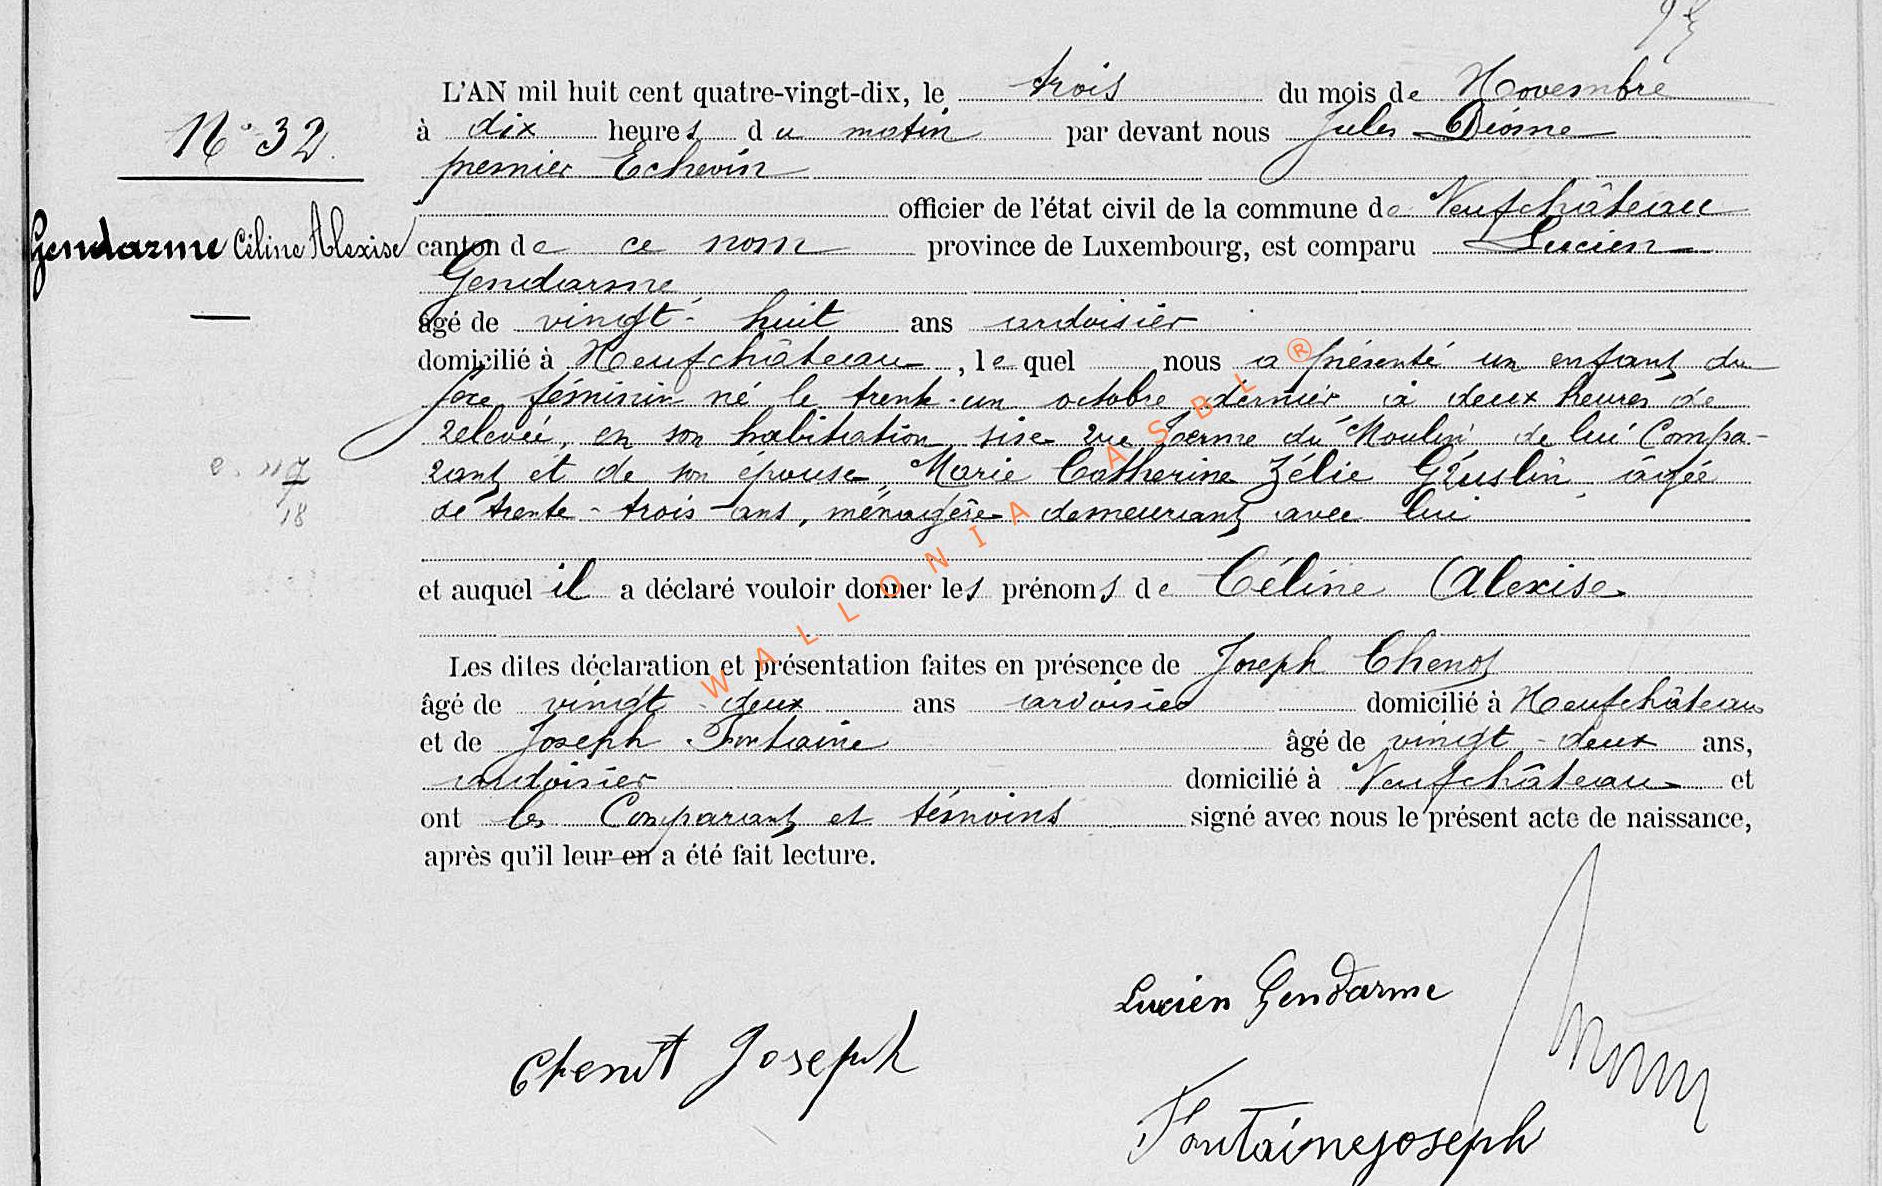 N° 32.
Gendarme Céline Alexise
L'AN mil huit cent quatre-vingt-dix, le trois du mois de Novembre
à dix heures du matin par devant nous Jules
premier Echevin
officier de l'état civil de la commune de Neufchâteau
canton de ce nom province de Luxembourg, est comparu Lucien
Gendarme
âgé de vingt-huit ans ardoisier
domicilié à Neufchâteau, lequel nous a présenté un enfant du
sexe féminin né le trente-un octobre dernier à deux heures de
relevée, en son habitation, sise rue du Moulin de lui Compa-
rant et de son épouse, Marie Catherine Zélie âgée
de trente-trois ans, ménagère demeurant avec lui
et auquel il a déclaré vouloir donner les prénoms de Céline Alexise
Les dites déclaration et présentation faites en présence de Joseph Chenot
âgé de vingt-deux ans ardoisier domicilié à Neufchâteau
et de Joseph Fontaine âgé de vingt-deux ans,
ardoisier domicilié à Neufchâteau et
ont les Comparant et témoins signé avec nous le présent acte de naissance,
après qu'il leur en a été fait lecture.
Lucien Gendarme
Chenot Joseph
Fontaine joseph
WALLONIA ASBL ®